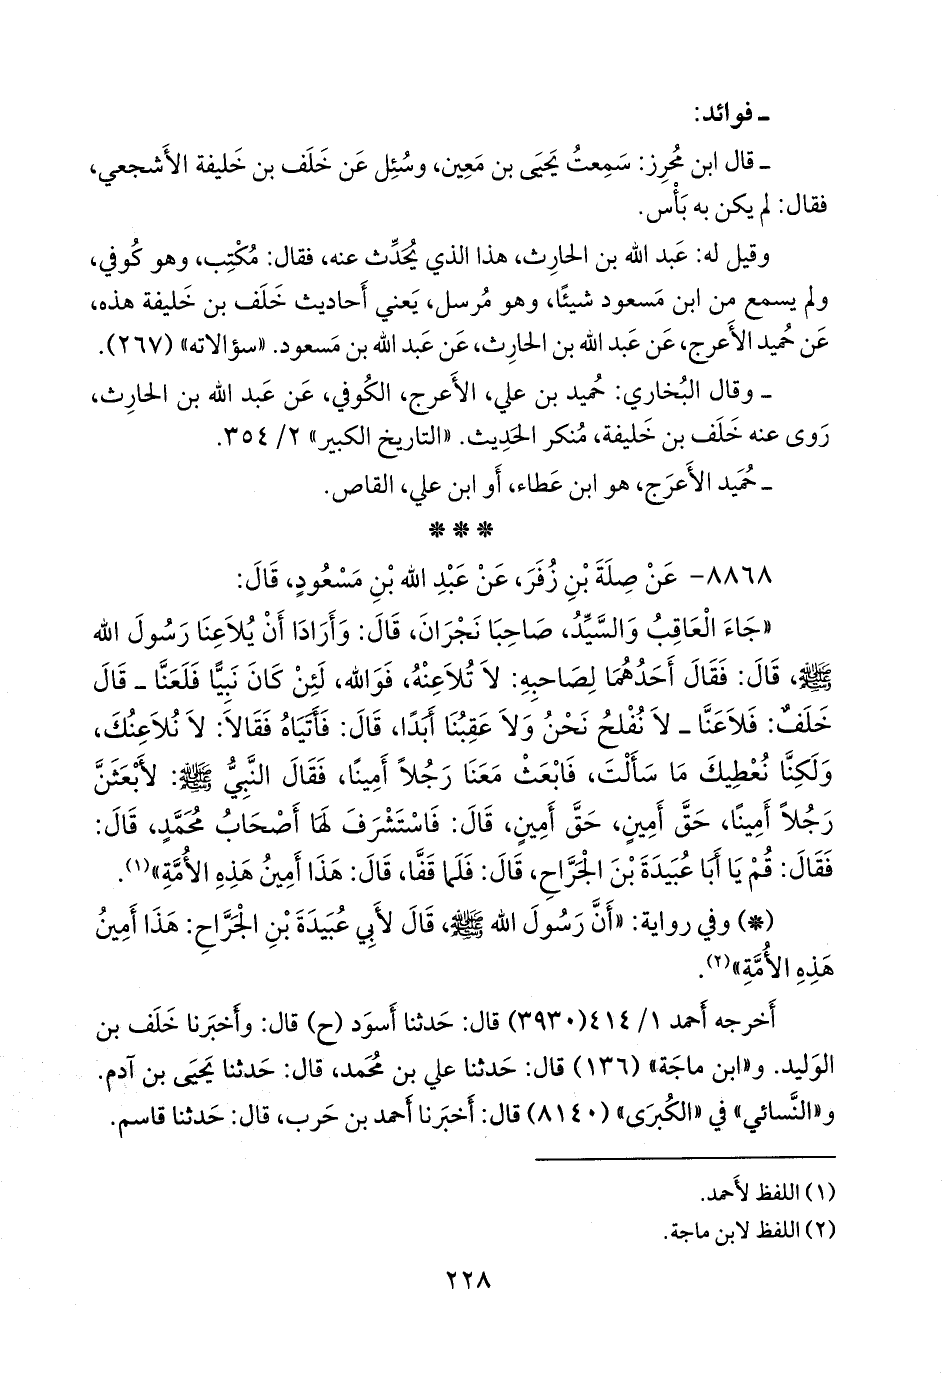 ـ فوائد:
ـ قال ابن مُحرِز: سَمِعتُ يَحيَى بن مَعِين، وسُئِل عَن خَلَف بن خَليفة الأَشجعي،
فقال: لم يكن به بَأْس.
وقيل له: عَبد الله بن الحارِث، هذا الذي يُحَدِّث عنه، فقال: مُكْتِب، وهو كُوفي،
ولم يسمع من ابن مَسعود شيئًا، وهو مُرسل، يَعني أَحاديث خَلَف بن خَليفة هذه،
عَن حُميد الأَعرج، عَن عَبد الله بن الحارِث، عَن عَبد الله بن مَسعود. «سؤالاته» (٢٦٧).
ـ وقال البُخاري: حُميد بن علي، الأَعرج، الكُوفي، عَن عَبد الله بن الحارِث،
رَوى عنه خَلَف بن خَليفة، مُنكر الحَديث. «التاريخ الكبير» ٢/ ٣٥٤.
ـ حُمَيد الأَعرَج، هو ابن عَطاء، أَو ابن علي، القاص.
***
٨٨٦٨- عَنْ صِلَةَ بْنِ زُفَرَ، عَنْ عَبْدِ الله بْنِ مَسْعُودٍ، قَالَ:
«جَاءَ الْعَاقِبُ وَالسَّيِّدُ، صَاحِبَا نَجْرَانَ، قَالَ: وَأَرَادَا أَنْ يُلاَعِنَا رَسُولَ الله
ﷺ، قَالَ: فَقَالَ أَحَدُهُمَا لِصَاحِبِهِ: لاَ تُلاَعِنْهُ، فَوَالله، لَئِنْ كَانَ نَبِيًّا فَلَعَنَّا ـ قَالَ
خَلَفٌ: فَلاَعَنَّا ـ لاَ نُفْلِحُ نَحْنُ وَلاَ عَقِبُنَا أَبَدًا، قَالَ: فَأَتَيَاهُ فَقَالاَ: لاَ نُلاَعِنُكَ،
وَلَكِنَّا نُعْطِيكَ مَا سَأَلْتَ، فَابْعَثْ مَعَنَا رَجُلاً أَمِينًا، فَقَالَ النَّبِيُّ ﷺ: لأَبْعَثَنَّ
رَجُلاً أَمِينًا، حَقَّ أَمِينٍ، حَقَّ أَمِينٍ، قَالَ: فَاسْتَشْرَفَ لَهَا أَصْحَابُ مُحَمَّدٍ، قَالَ:
فَقَالَ: قُمْ يَا أَبَا عُبَيْدَةَ بْنَ الْجَرَّاحِ، قَالَ: فَلَمَّا قَفَّا، قَالَ: هَذَا أَمِينُ هَذِهِ الأُمَّةِ»(١).
(*) وفي رواية: «أَنَّ رَسُولَ الله ﷺ، قَالَ لأَبِي عُبَيْدَةَ بْنِ الْجَرَّاحِ: هَذَا أَمِينُ
هَذِهِ الأُمَّةِ»(٢).
أَخرجه أَحمد ١/ ٤١٤(٣٩٣٠) قال: حَدثنا أَسوَد (ح) قال: وأَخبَرنا خَلَف بن
الوَليد. و«ابن ماجَة» (١٣٦) قال: حَدثنا علي بن مُحمد، قال: حَدثنا يَحيَى بن آدم.
و«النَّسائي» في «الكُبرَى» (٨١٤٠) قال: أَخبَرنا أَحمد بن حَرب، قال: حَدثنا قاسم.
(١) اللفظ لأَحمد.
(٢) اللفظ لابن ماجة.
٢٢٨